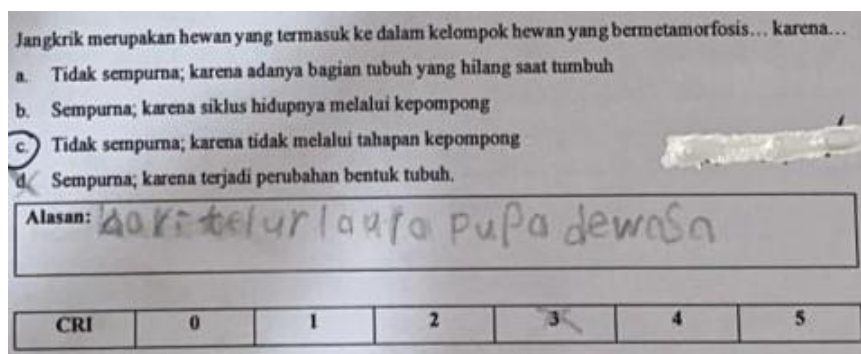 Jangkrik merupakan hewan yang termasuk ke dalam kelompok hewan yang bermetamorfosis... karena...
a. Tidak sempurna; karena adanya bagian tubuh yang hilang saat tumbuh
b. Sempurna; karena siklus hidupnya melalui kepompong
c. Tidak sempurna; karena tidak melalui tahapan kepompong
d. Sempurna; karena terjadi perubahan bentuk tubuh.
Alasan: dari telur laura pupa dewasa
CRI 0 1 2 3 4 5